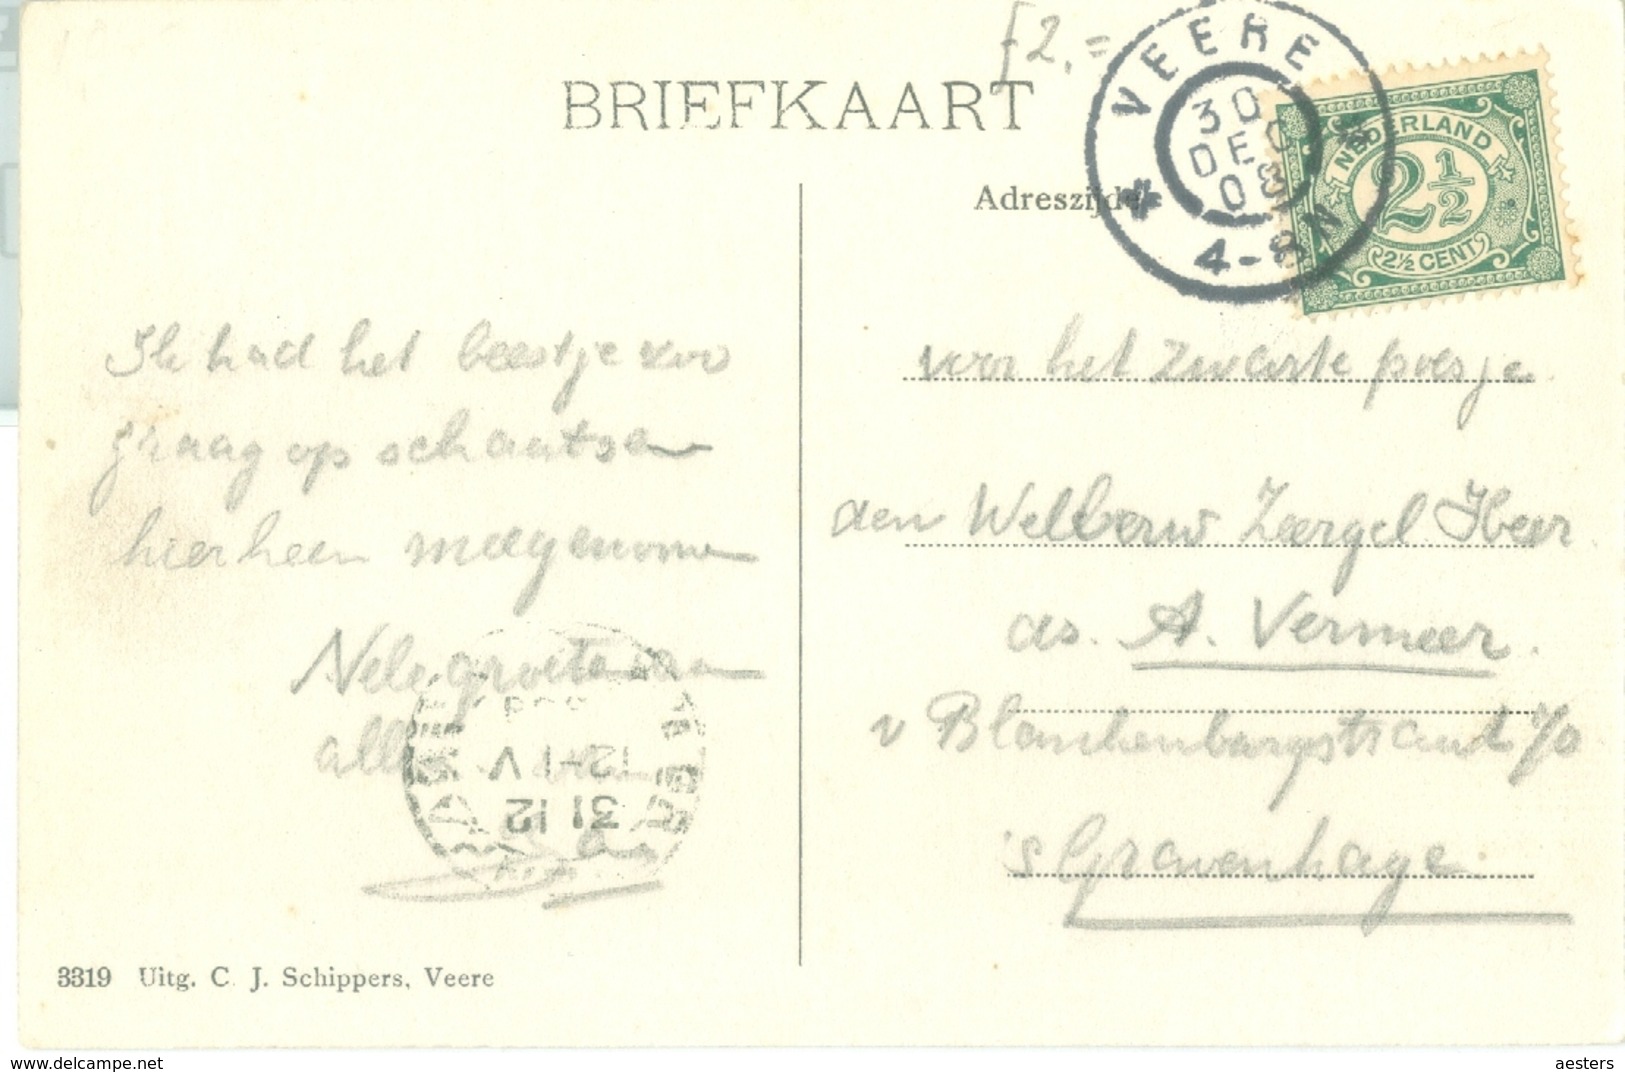 f 2,=
BRIEFKAART
VEERE
30
DEC
08
4-8N
NEDERLAND
2 1/2
2½ CENT
Adreszijde
Ik had het beestje zoo
graag op schaatsen
hierheen meegenomen
Vele groeten aan
allen van
31 12
12-1 V
voor het zwarte poesje
den Weledelgeb Zeergel Heer
A. Vermeer.
v Blankenburgstraat 70
's Gravenhage.
3319 Uitg. C. J. Schippers, Veere
aesters
www.delcampe.net